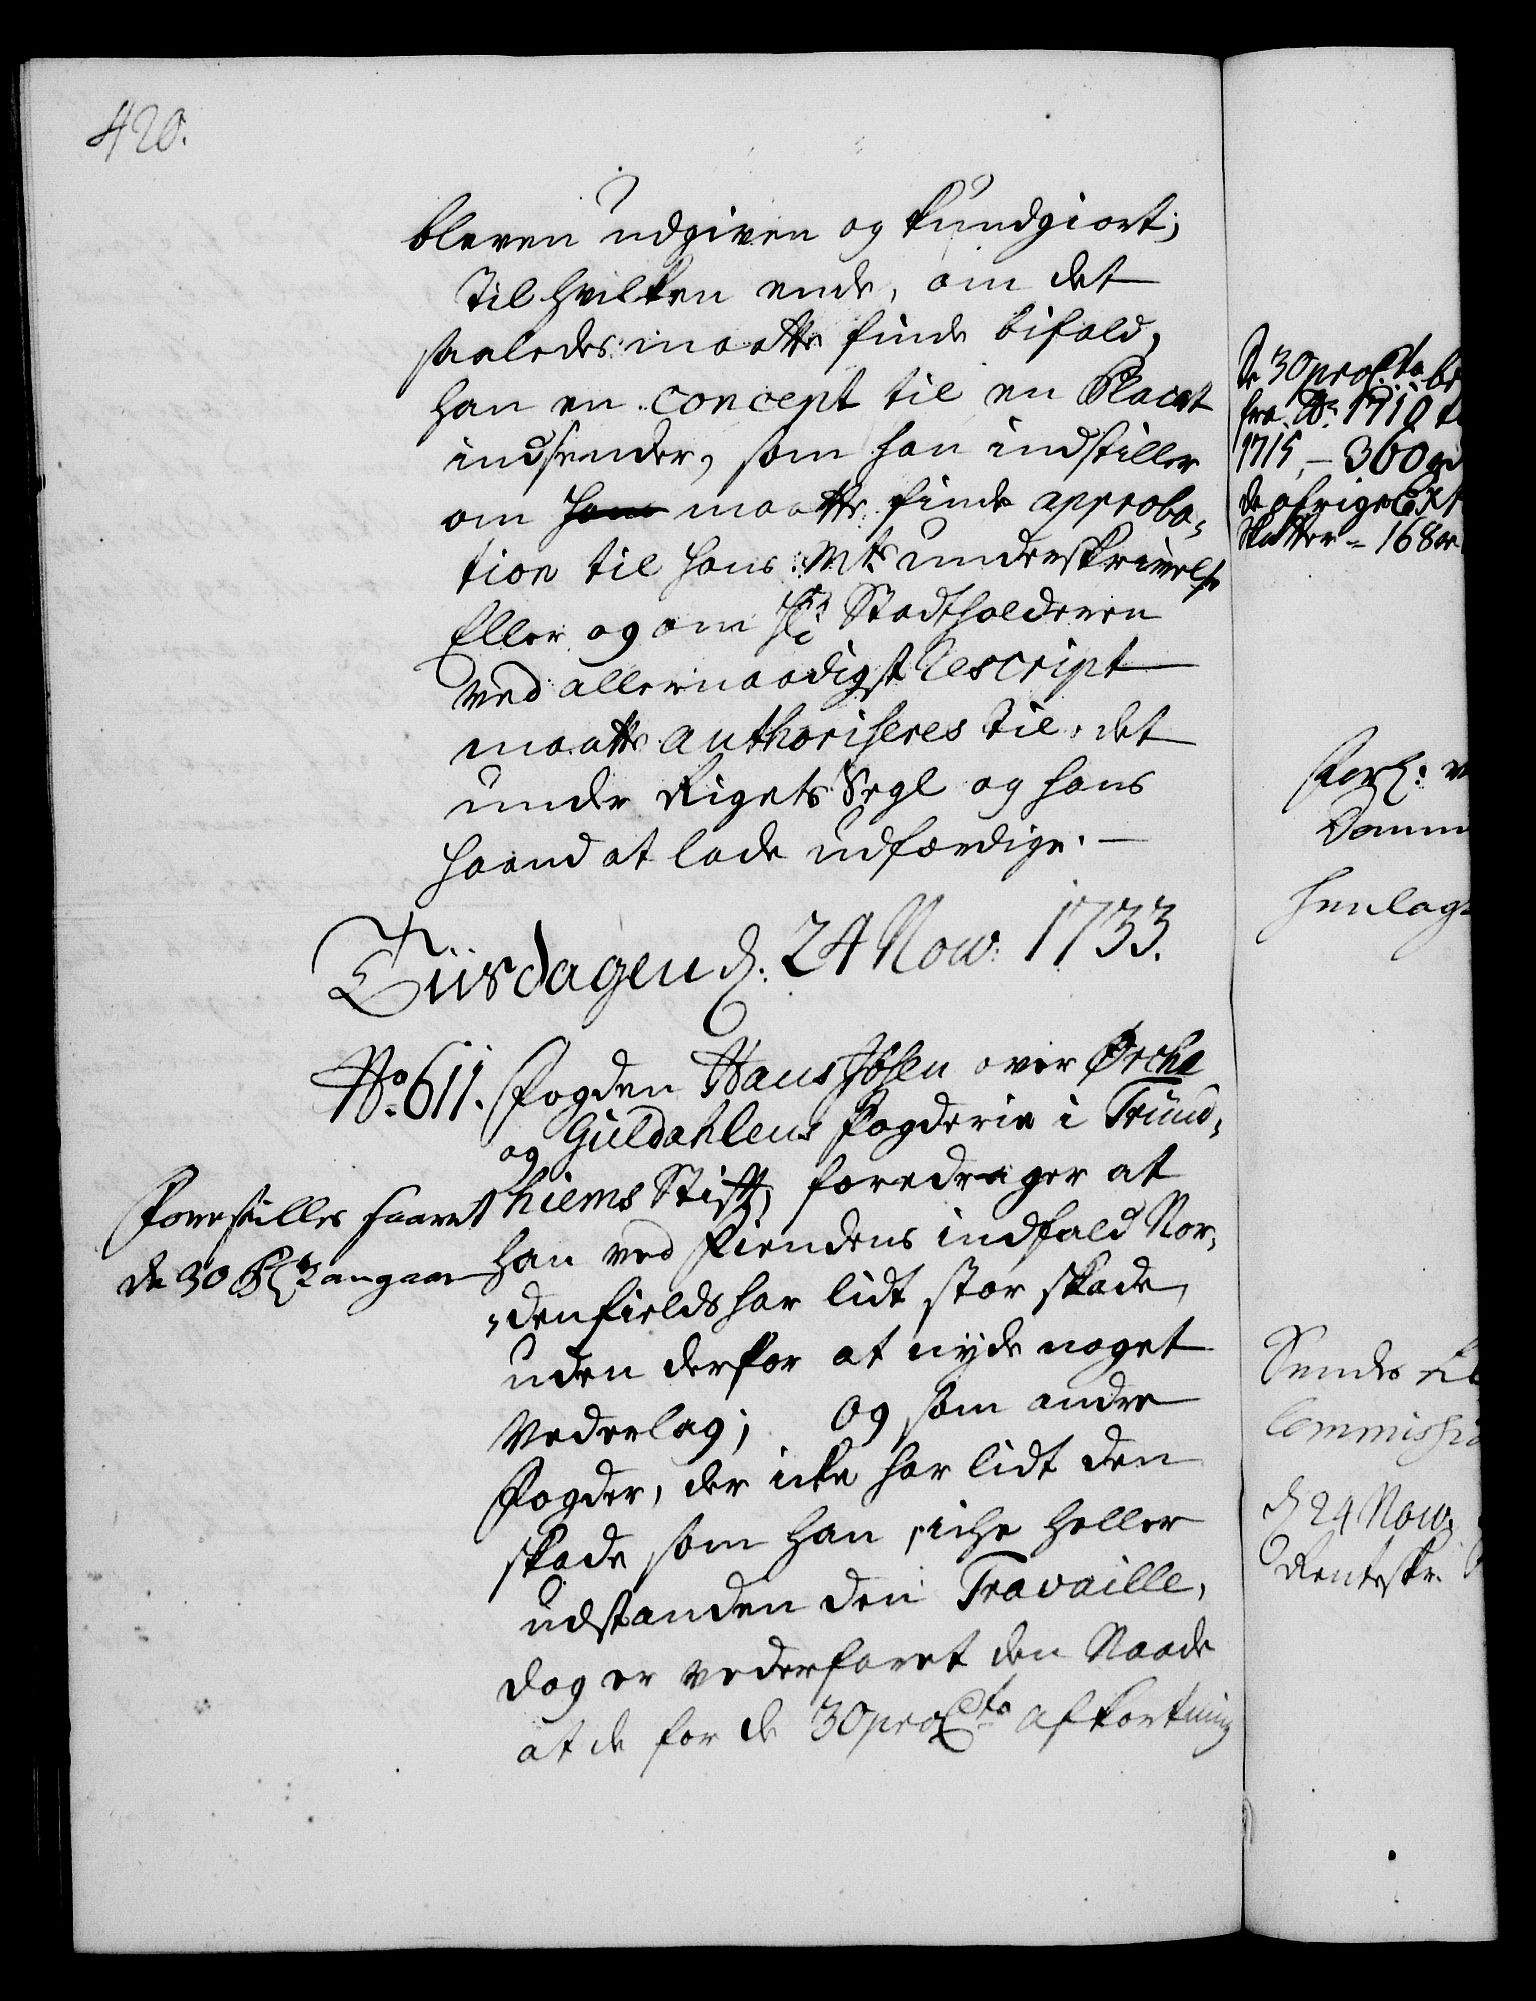 420.
bleven udgiven og kundgiort;
til hvilken ende, om det
saaledes maatte finde bifald,
han en concept til en Placat
indsender, som han indstiller
om maatte finde approba-
tion til hans Mts underskrivelse
Eller og om Stadtholderen
ved allernaadigst Rescript
maatte authoriseres til det
under Rigets Segl og hans
haand at lade udfærdige. —
Tiisdagen d: 24 Nov: 1733.
No. 611. Fogden Hans Ibsen over Ørche
og Guldahlens Fogderie i Trund-
hiems Stift, foredrager at
Forestilles saavit
de 30 angaar
han ved Fiendens indfald Nor-
denfields har lidt stor skade,
uden derfor at nyde noget
Vederlag; Og som andre
Fogder, der icke har lidt den
skade som han, iche heller
udstanden den Travaille,
dog er vederfaret den Naade
at de for de 30 pro Cto afkortning
De 30 pro Cto
fra Ao 1710
1715, — 360
de øfrige Ext
Skatter - 168
Forh:
Henlagt
Sendes
Commissio
d 24 Nov:
Renteskr.